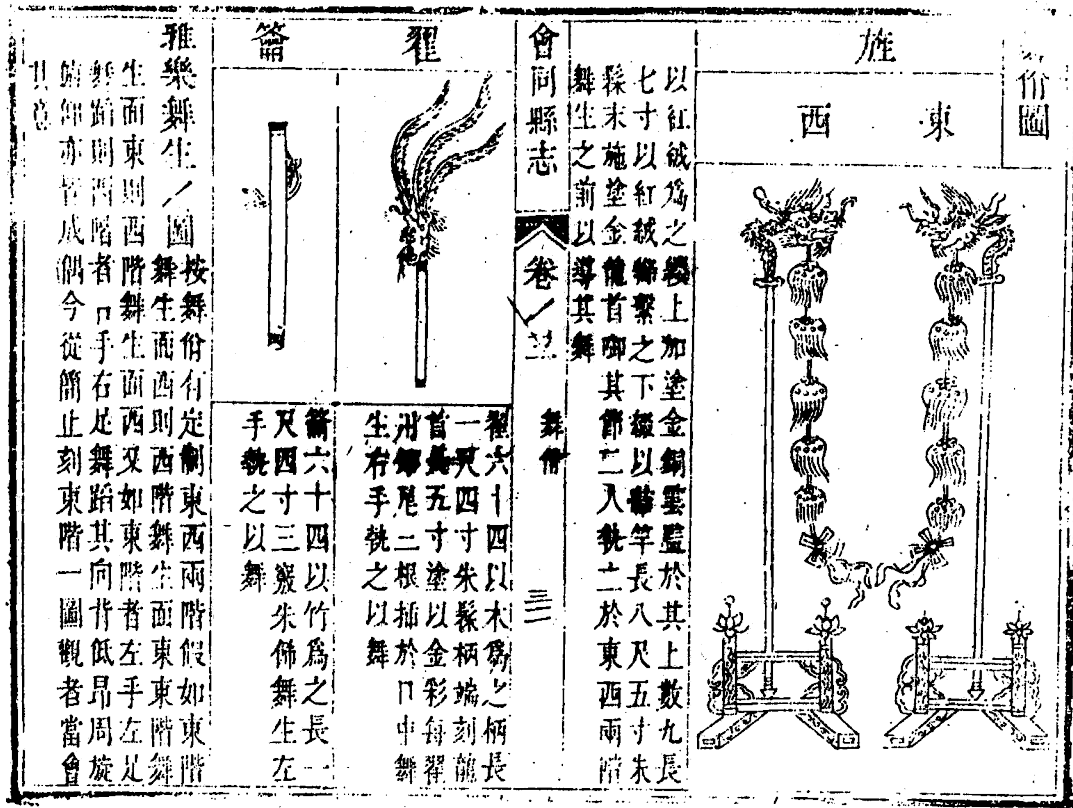 佾圖
旌
東
西
以紅絨爲之纓上加塗金銅雲葢於其上數九長
七寸以紅絨絛繫之下綴以竿長八尺五寸朱
髹末施塗金龍首啣其二人執之於東西兩階
舞生之前以導其舞
會同縣志
卷
舞佾
三
翟
翟六十四以木爲之柄長
一尺四寸朱髹柄端刻龍
首長五寸塗以金彩每翟
用雉尾二根插於口中舞
生右手執之以舞
籥
籥六十四以竹爲之長一
尺四寸三竅朱髹舞生左
手執之以舞
雅樂舞生圖
按舞佾有定制東西兩階假如東階
舞生面西則西階舞生面東東階舞
生面東則西階舞生面西又如東階者左手左足
舞蹈則西階者右手右足舞蹈其向背低昂周旋
俯仰亦皆成偶今從簡止刻東階一圖觀者當會
其意